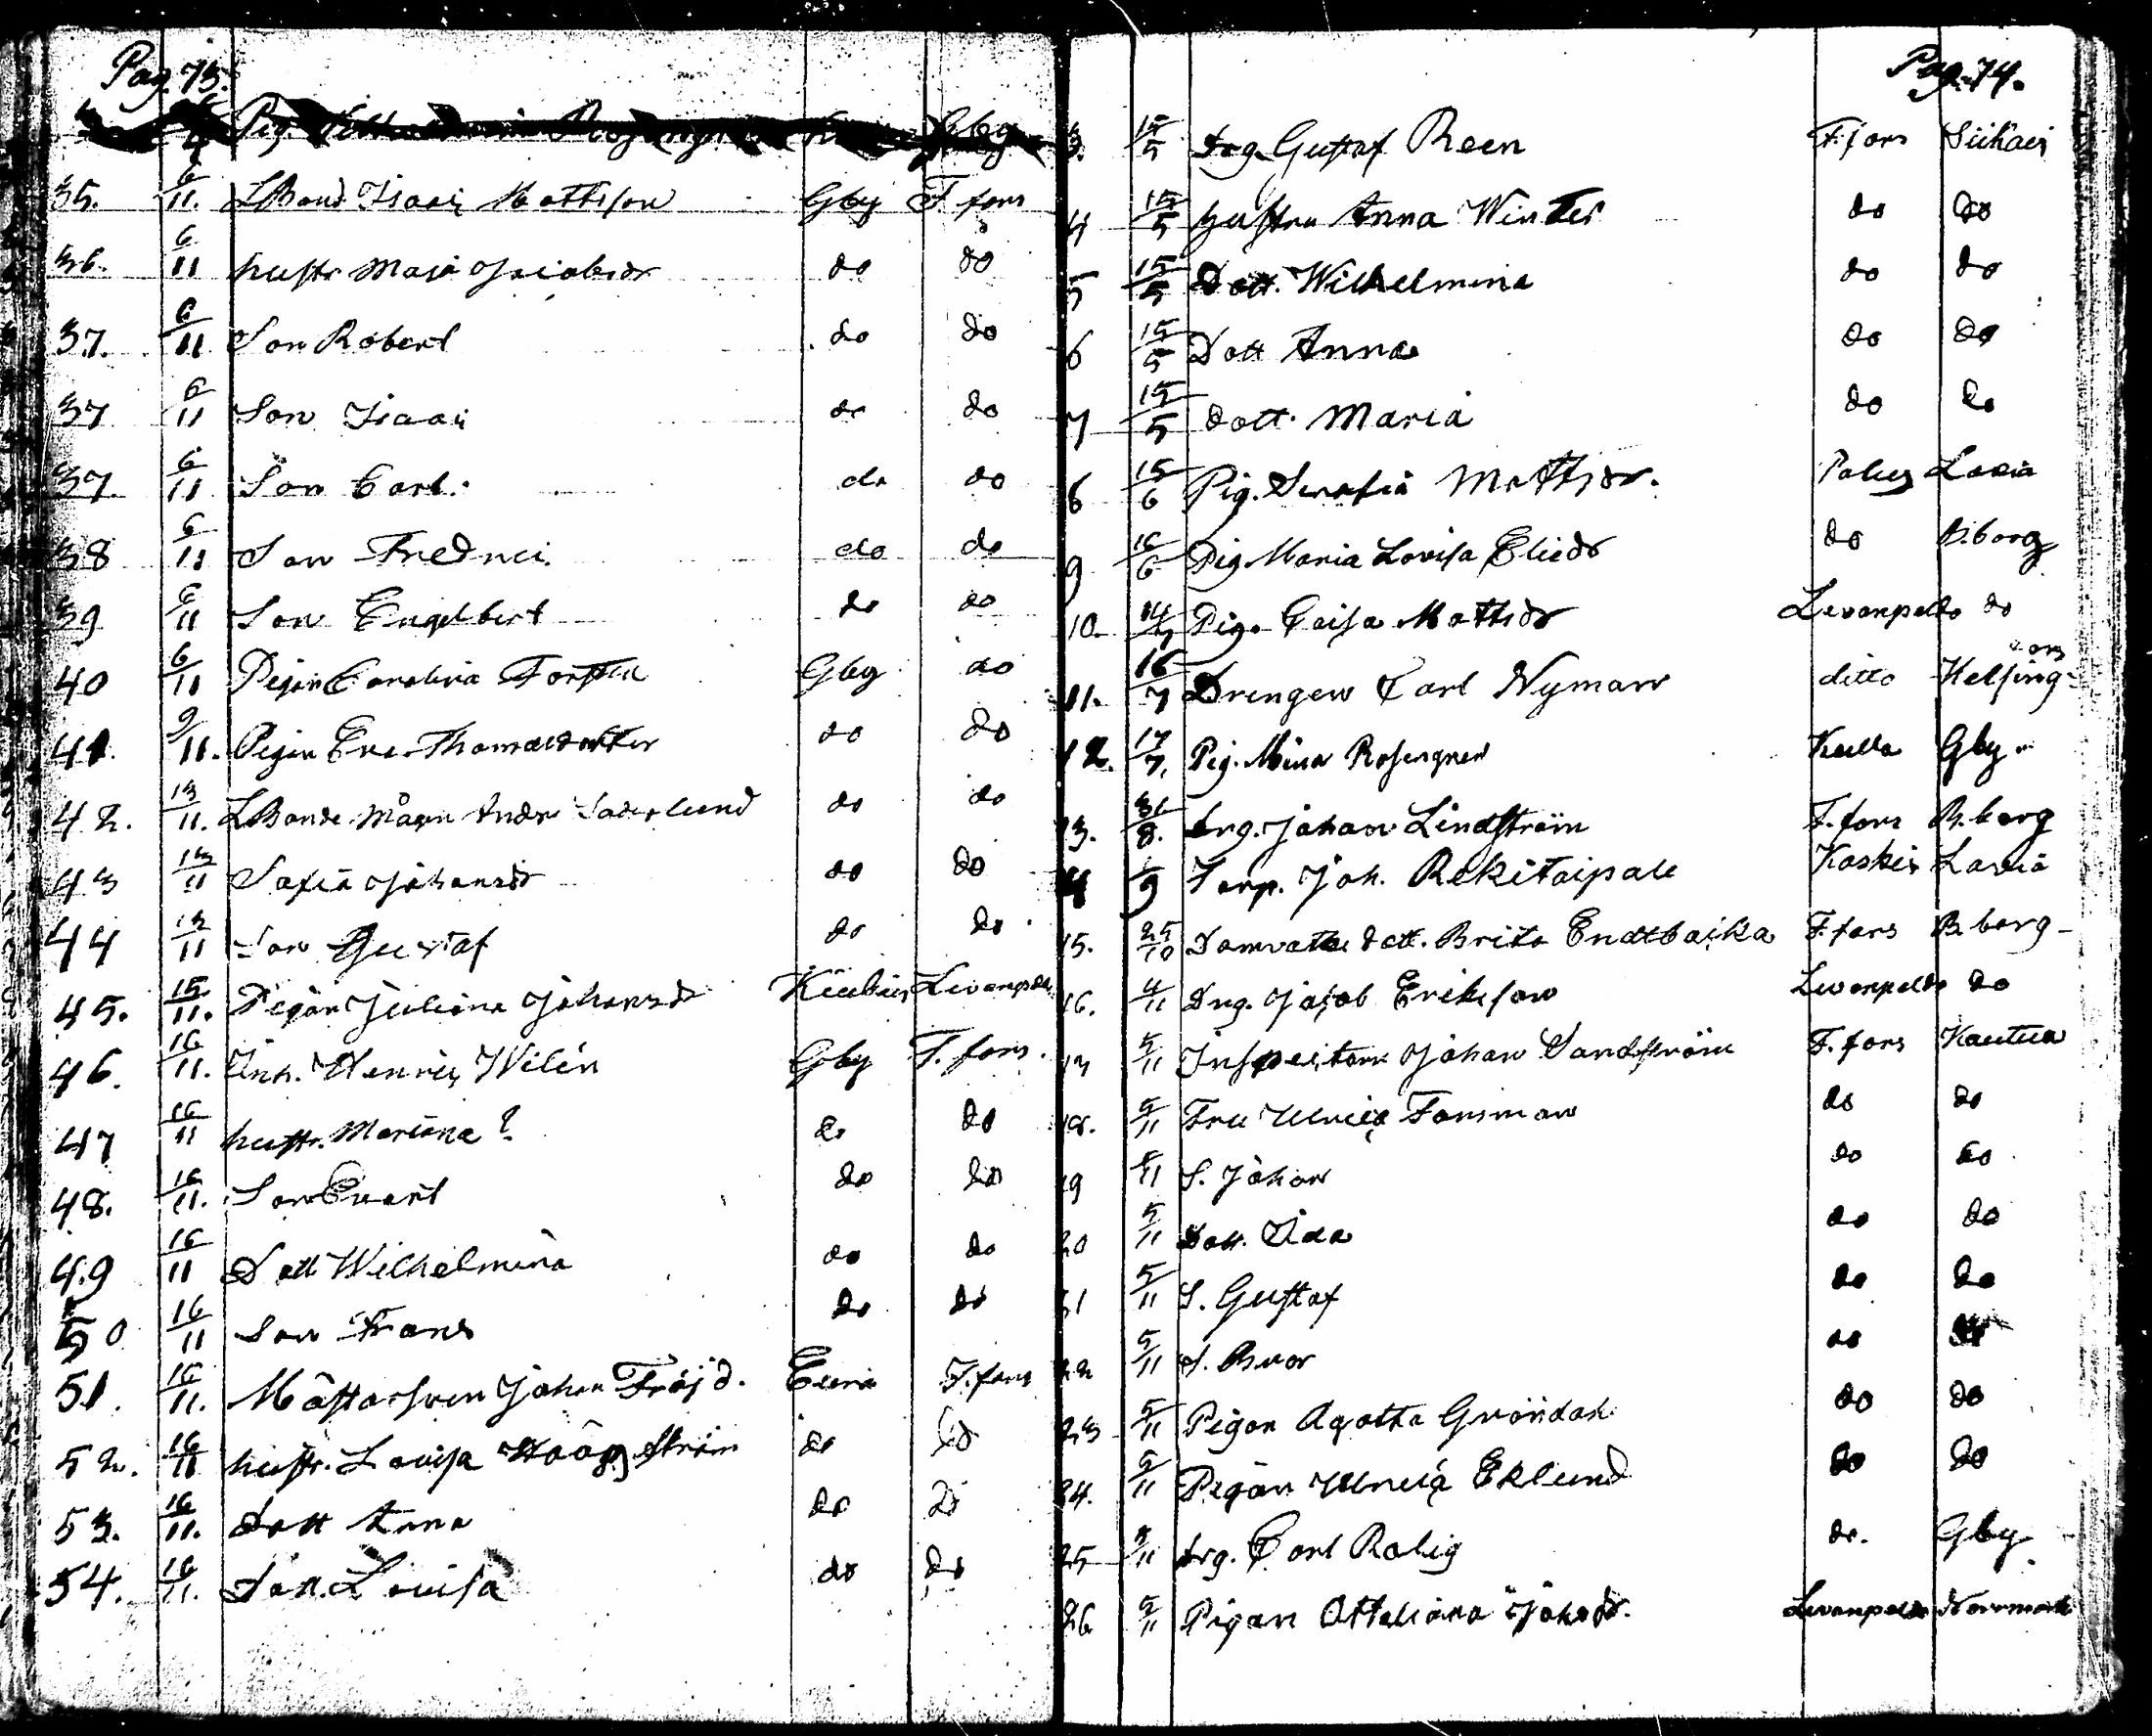 Pag. 73.
35. 6/11. LBond. Isaac Mattsson Gby F. fors
36. 6/11 hustr Maja Jacobsdr do do
37. 6/11 Son Robert do do
37 6/11 Son Isaac do do
37 6/11 Son Carl. do do
38 6/11 Son Fredrici. do do
39 6/11 Son Engelbert do do
40 6/11 Pigan Carolina Gby do
41. 9/11. Pigan Eva Thomasdotter do do
42. 13/11. LBonde Magn Andr Söderlund do do
43 13/11 Sofia Johansdr do do
44 13/11 Son Gustaf do do
45. 15/11. Pigan Juliana Johansdr Levanp
46. 16/11. Inh. Henric Wilén Gby F. fors.
47 16/11 hustr. Mariana ? do do
48. 16/11. Son Evert do do
49 16/11 Dott Wilhelmina do do
50 16/11 Son Frans do do
51. 16/11. Mästarsven Johan Fröjd. Eura F. fors
52. 16/11 hustr. Lovisa Hoögström do do
53. 16/11. Dott Anna do do
54. 16/11. Dott. Lovisa do do
Pag. 74.
3. 15/5 Drg. Gustaf Reen F. fors Siikais
4 15/5 hustru Anna Winter do do
5 15/5 Dott. Wilhelmina do do
6 15/5 Dott Anna do do
7 15/5 dott. Maria do do
8 15/6 Pig. Serafia Mattsdr. Lavia
9 16/6 Pig. Maria Lovisa Eliedr do B.borg
10. 14/7 Pig. Caisa Mattsdr Levanpelto do
11. 16/7 Drengen Carl Nyman ditto Helsing-fors
12. 17/7. Pig. Mina Rosengren Kulla Gby
13. 31/8. drg. Johan Lindström F. fors B. borg
14 1/9 Torp. Joh. Rekitaipale Koskis Lavia
15. 25/10 dott. Brita F. fors B. borg
16. 4/11 Drg. Jacob Eriksson Levanpelto do
17 5/11 Inspectorn Johan Sandström F. fors Kautua
18. 5/11 Fru Ulrica Forsman do do
19 5/11 S. Johan do do
20 5/11 Dott. Ida do do
21 5/11 S. Gustaf do do
22 5/11 S. do
23 5/11 Pigan Agatha Gröndah do do
24. 5/11 Pigan Ulrica Eklund do do
25 5/11 drg. Carl Rolig do. Gby
26. 5/11 Pigan Otteliana Johsdr. Levanpelto Norrmark